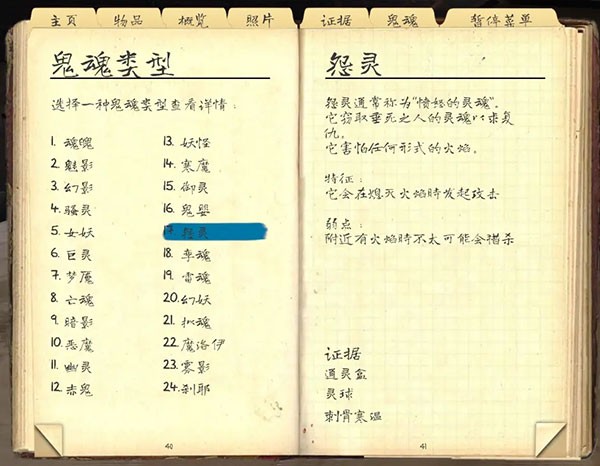 主页 物品 概览 照片 证据 鬼魂 暂停菜单
鬼魂类型
选择一种鬼魂类型查看详情：
1. 魂魄
2. 魅影
3. 幻影
4. 骚灵
5. 女妖
6. 巨灵
7. 梦魇
8. 亡魂
9. 暗影
10. 恶魔
11. 幽灵
12. 赤鬼
13. 妖怪
14. 寒魔
15. 御灵
16. 鬼婴
17. 怨灵
18. 孪魂
19. 雷魂
20. 幻妖
21. 拟魂
22. 魔洛伊
23. 雾影
24. 刹耶
40
怨灵
怨灵通常称为“愤怒的灵魂”。
它窃取垂死之人的灵魂以求复
仇。
它害怕任何形式的火焰。
特征：
它会在熄灭火焰时发起攻击
弱点：
附近有火焰时不太可能会猎杀
证据
通灵盒
灵球
刺骨寒温
41